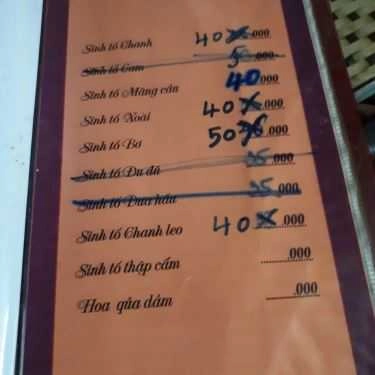 Sinh tố Chanh 40 .000
Sinh tố Cam .000
Sinh tố Mãng cầu 40.000
Sinh tố Xoài 40 .000
Sinh tố Bơ 50 .000
Sinh tố Đu đủ 35.000
Sinh tố Dưa hấu 35.000
Sinh tố Chanh leo 40 .000
Sinh tố thập cẩm .........000
Hoa qủa dầm .........000